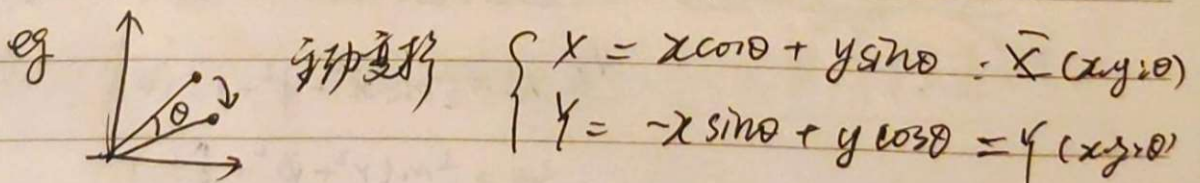 eg θ 主动变换 { X = x cosθ + y sinθ = X̄ (x,y;θ)
Y = -x sinθ + y cosθ = Y (x,y;θ)